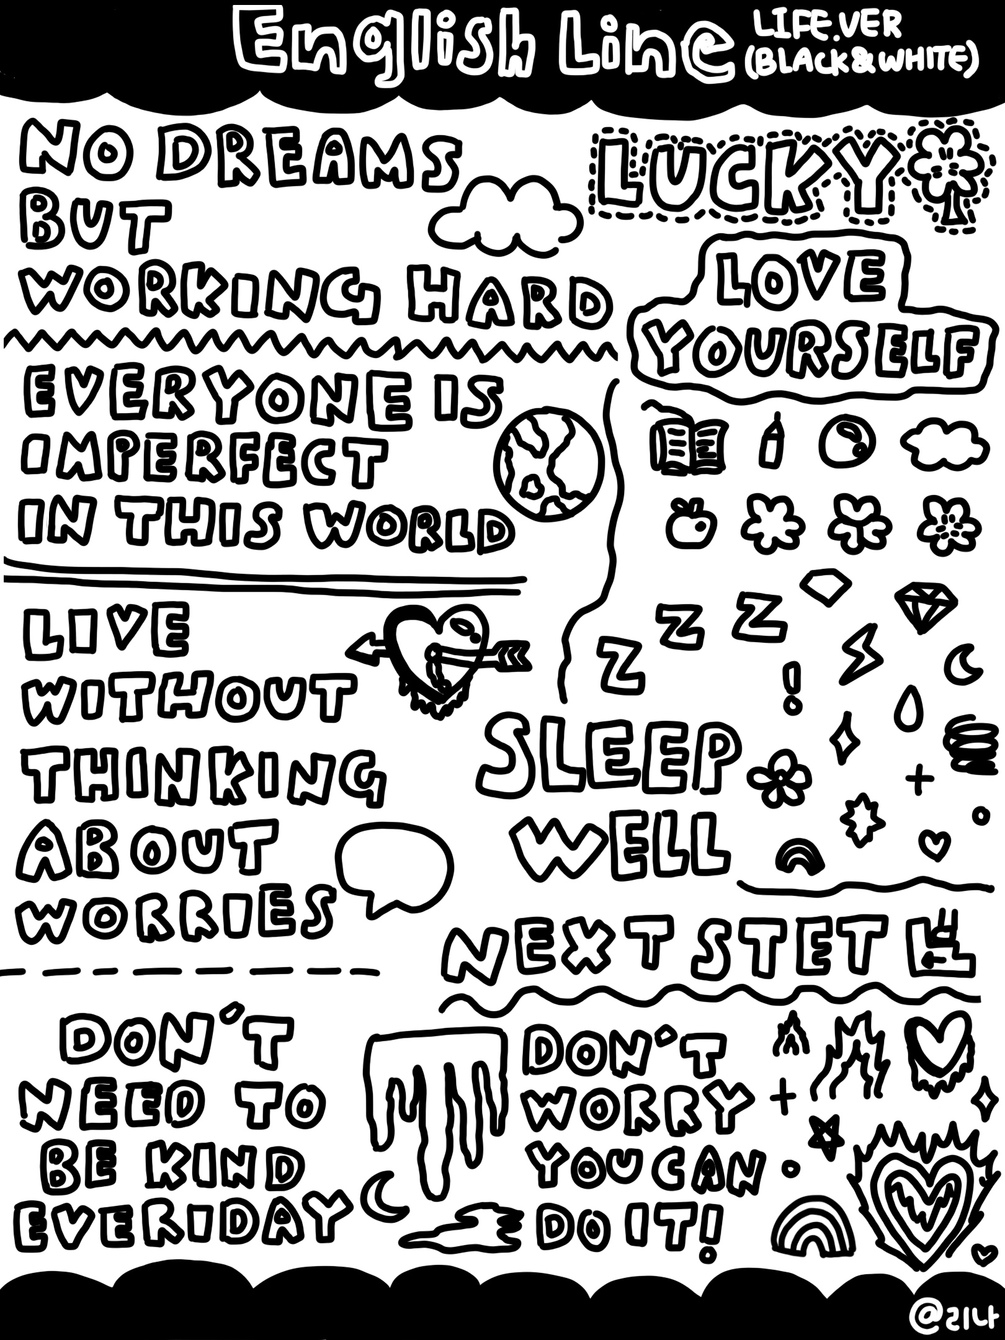 English Line
LIFE.VER
(BLACK&WHITE)
NO DREAMS
BUT
WORKING HARD
LUCKY
LOVE
YOURSELF
EVERYONE IS
IMPERFECT
IN THIS WORLD
LIVE
WITHOUT
THINKING
ABOUT
WORRIES
Z Z Z
!
SLEEP
WELL
NEXT STET
DON'T
NEED TO
BE KIND
EVERIDAY
DON'T
WORRY
YOU CAN
DO IT!
@리나